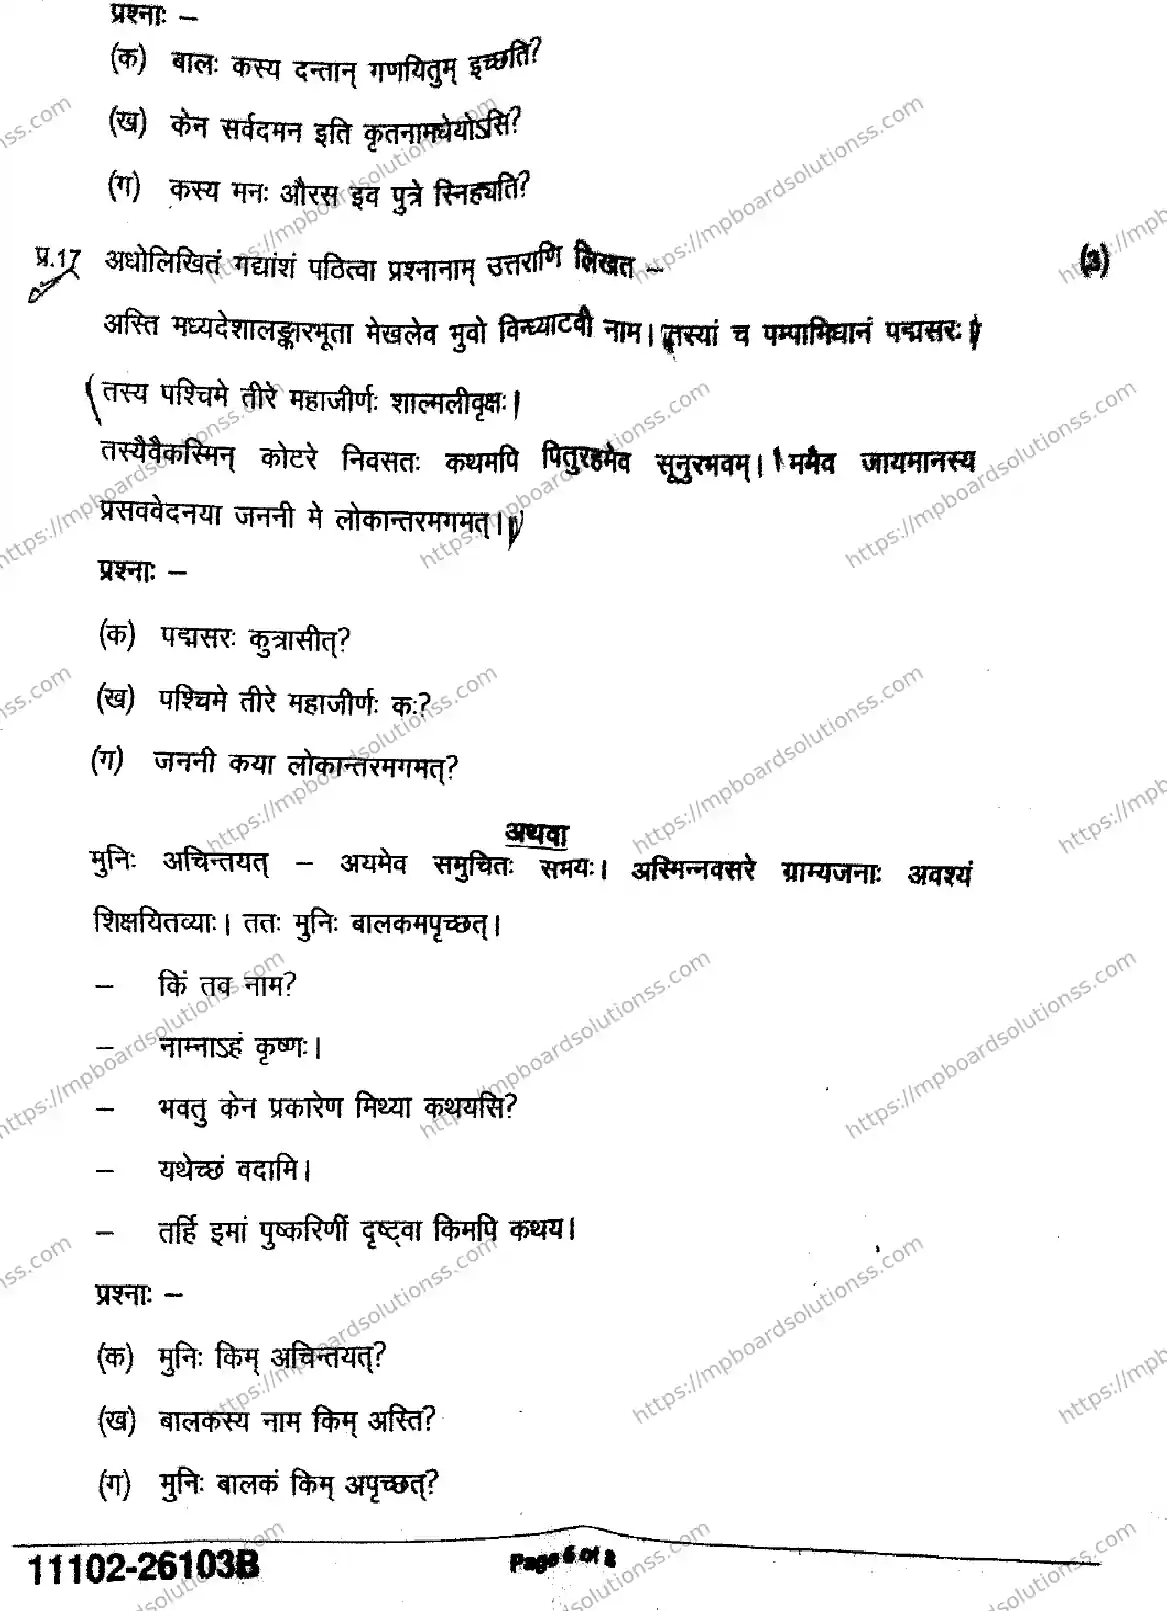 प्रश्नाः –
(क) बालः कस्य दन्तान् गणयितुम् इच्छति?
(ख) केन सर्वदमन इति कृतनामधेयोऽसि?
(ग) कस्य मनः औरस इव पुत्रे स्निह्यति?
प्र.17 अधोलिखितं गद्यांशं पठित्वा प्रश्नानाम् उत्तराणि लिखत – (3)
अस्ति मध्यदेशालङ्कारभूता मेखलेव भुवो विन्ध्याटवी नाम। तस्यां च पम्पाभिधानं पद्मसरः।
तस्य पश्चिमे तीरे महाजीर्णः शाल्मलीवृक्षः।
तस्यैवैकस्मिन् कोटरे निवसतः कथमपि पितुरहमेव सूनुरभवम्। ममैव जायमानस्य
प्रसववेदनया जननी मे लोकान्तरमगमत्।
प्रश्नाः –
(क) पद्मसरः कुत्रासीत्?
(ख) पश्चिमे तीरे महाजीर्णः कः?
(ग) जननी कया लोकान्तरमगमत्?
अथवा
मुनिः अचिन्तयत् – अयमेव समुचितः समयः। अस्मिन्नवसरे ग्राम्यजनाः अवश्यं
शिक्षयितव्याः। ततः मुनिः बालकमपृच्छत्।
– किं तव नाम?
– नाम्नाऽहं कृष्णः।
– भवतु केन प्रकारेण मिथ्या कथयसि?
– यथेच्छं वदामि।
– तर्हि इमां पुष्करिणीं दृष्ट्वा किमपि कथय।
प्रश्नाः –
(क) मुनिः किम् अचिन्तयत्?
(ख) बालकस्य नाम किम् अस्ति?
(ग) मुनिः बालकं किम् अपृच्छत्?
11102-26103B Page 6 of 8
https://mpboardsolutionss.com